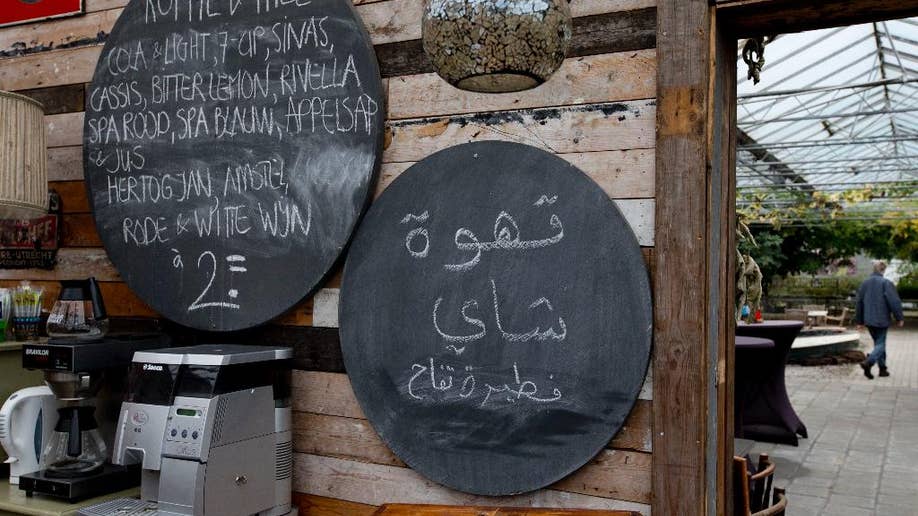 KOFFIE & THEE
COLA & LIGHT, 7-UP, SINAS,
CASSIS, BITTER LEMON, RIVELLA
SPA ROOD, SPA BLAUW, APPELSAP
& JUS
HERTOG JAN, AMSTEL,
RODE & WITTE WIJN
à 2=
قهوة
شاي
فطيرة تفاح
BRAVILOR
Saeco